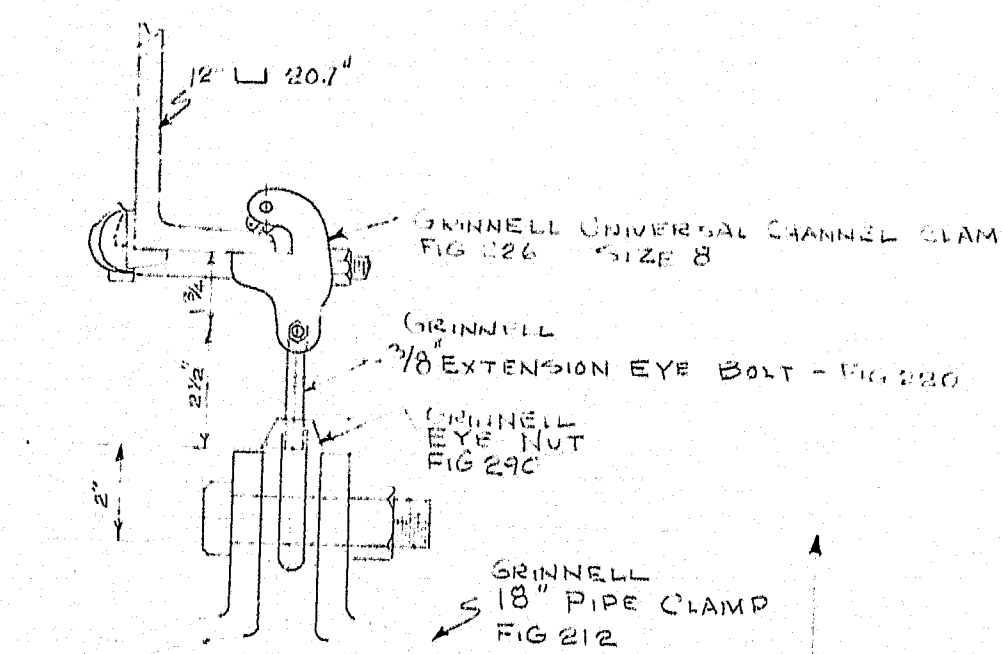 12" ⊔ 20.7#
GRINNELL UNIVERSAL CHANNEL CLAM
FIG 226 SIZE 8
1 3/4
GRINNELL
3/8" EXTENSION EYE BOLT - FIG 280
2 1/2"
GRINNELL
EYE NUT
FIG 290
2"
GRINNELL
18" PIPE CLAMP
FIG 212